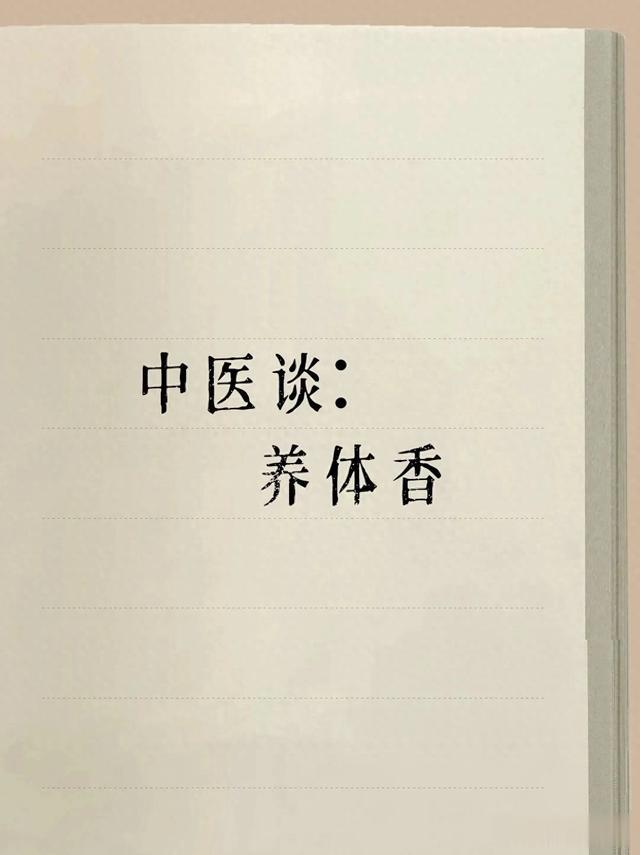 中医谈：
养体香